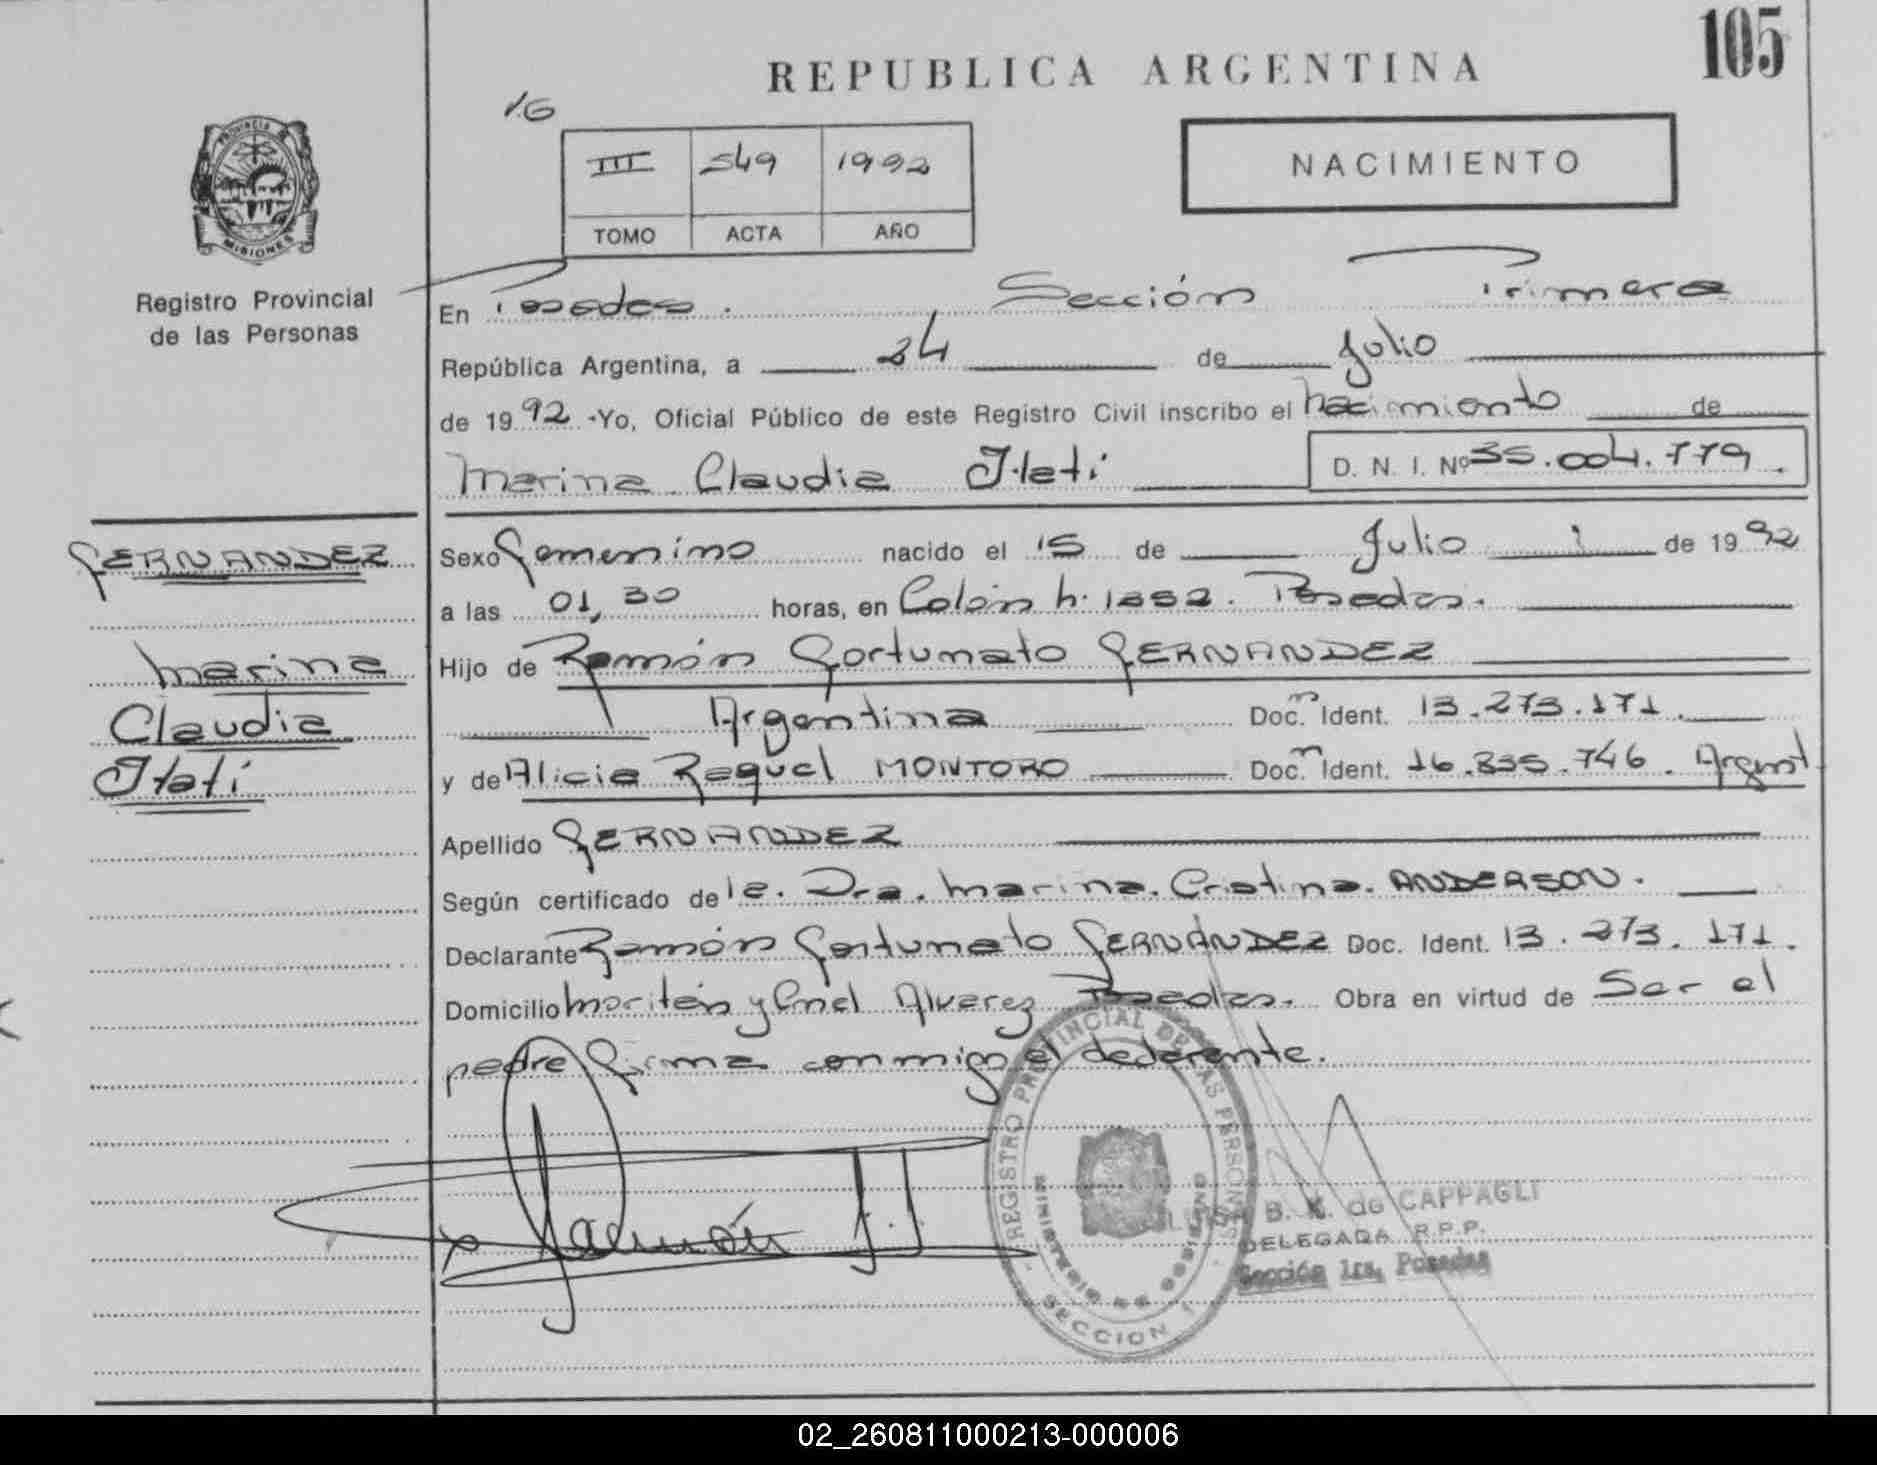 105
REPUBLICA ARGENTINA
16
III 549 1992
TOMO ACTA AÑO
NACIMIENTO
PROVINCIA DE
MISIONES
Registro Provincial
de las Personas
En Posadas. Sección Primera
República Argentina, a 24 de Julio
de 1992 - Yo, Oficial Público de este Registro Civil inscribo el nacimiento de
Marina Claudia Itatí D. N. I. Nº 35.004.779.
FERNANDEZ
Marina
Claudia
Itatí
Sexo Femenino nacido el 15 de Julio de 1992
a las 01,30 horas, en Colón n. 1552. Posadas.
Hijo de Ramón Fortunato FERNANDEZ
Argentina Doc. Ident. 13.273.171.
y de Alicia Raquel MONTORO Doc. Ident. 16.835.746. Argent
Apellido FERNANDEZ
Según certificado de la. Dra. Marina. Cristina. ANDERSON.
Declarante Ramón Fortunato FERNÁNDEZ Doc. Ident. 13.273.171.
Domicilio y Cnel Alvarez Posadas. Obra en virtud de Ser el
padre firma conmigo el declarante.
REGISTRO PROVINCIAL DE LAS PERSONAS
MINISTERIO DE GOBIERNO
SECCION 1
B. K. de CAPPAGLI
DELEGADA R.P.P.
Sección 1ra. Posadas
02_260811000213-000006